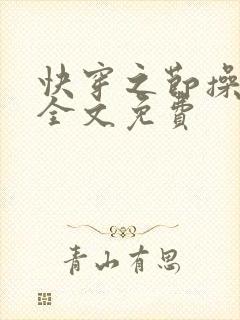 快穿之节操
全文免费
青山有思